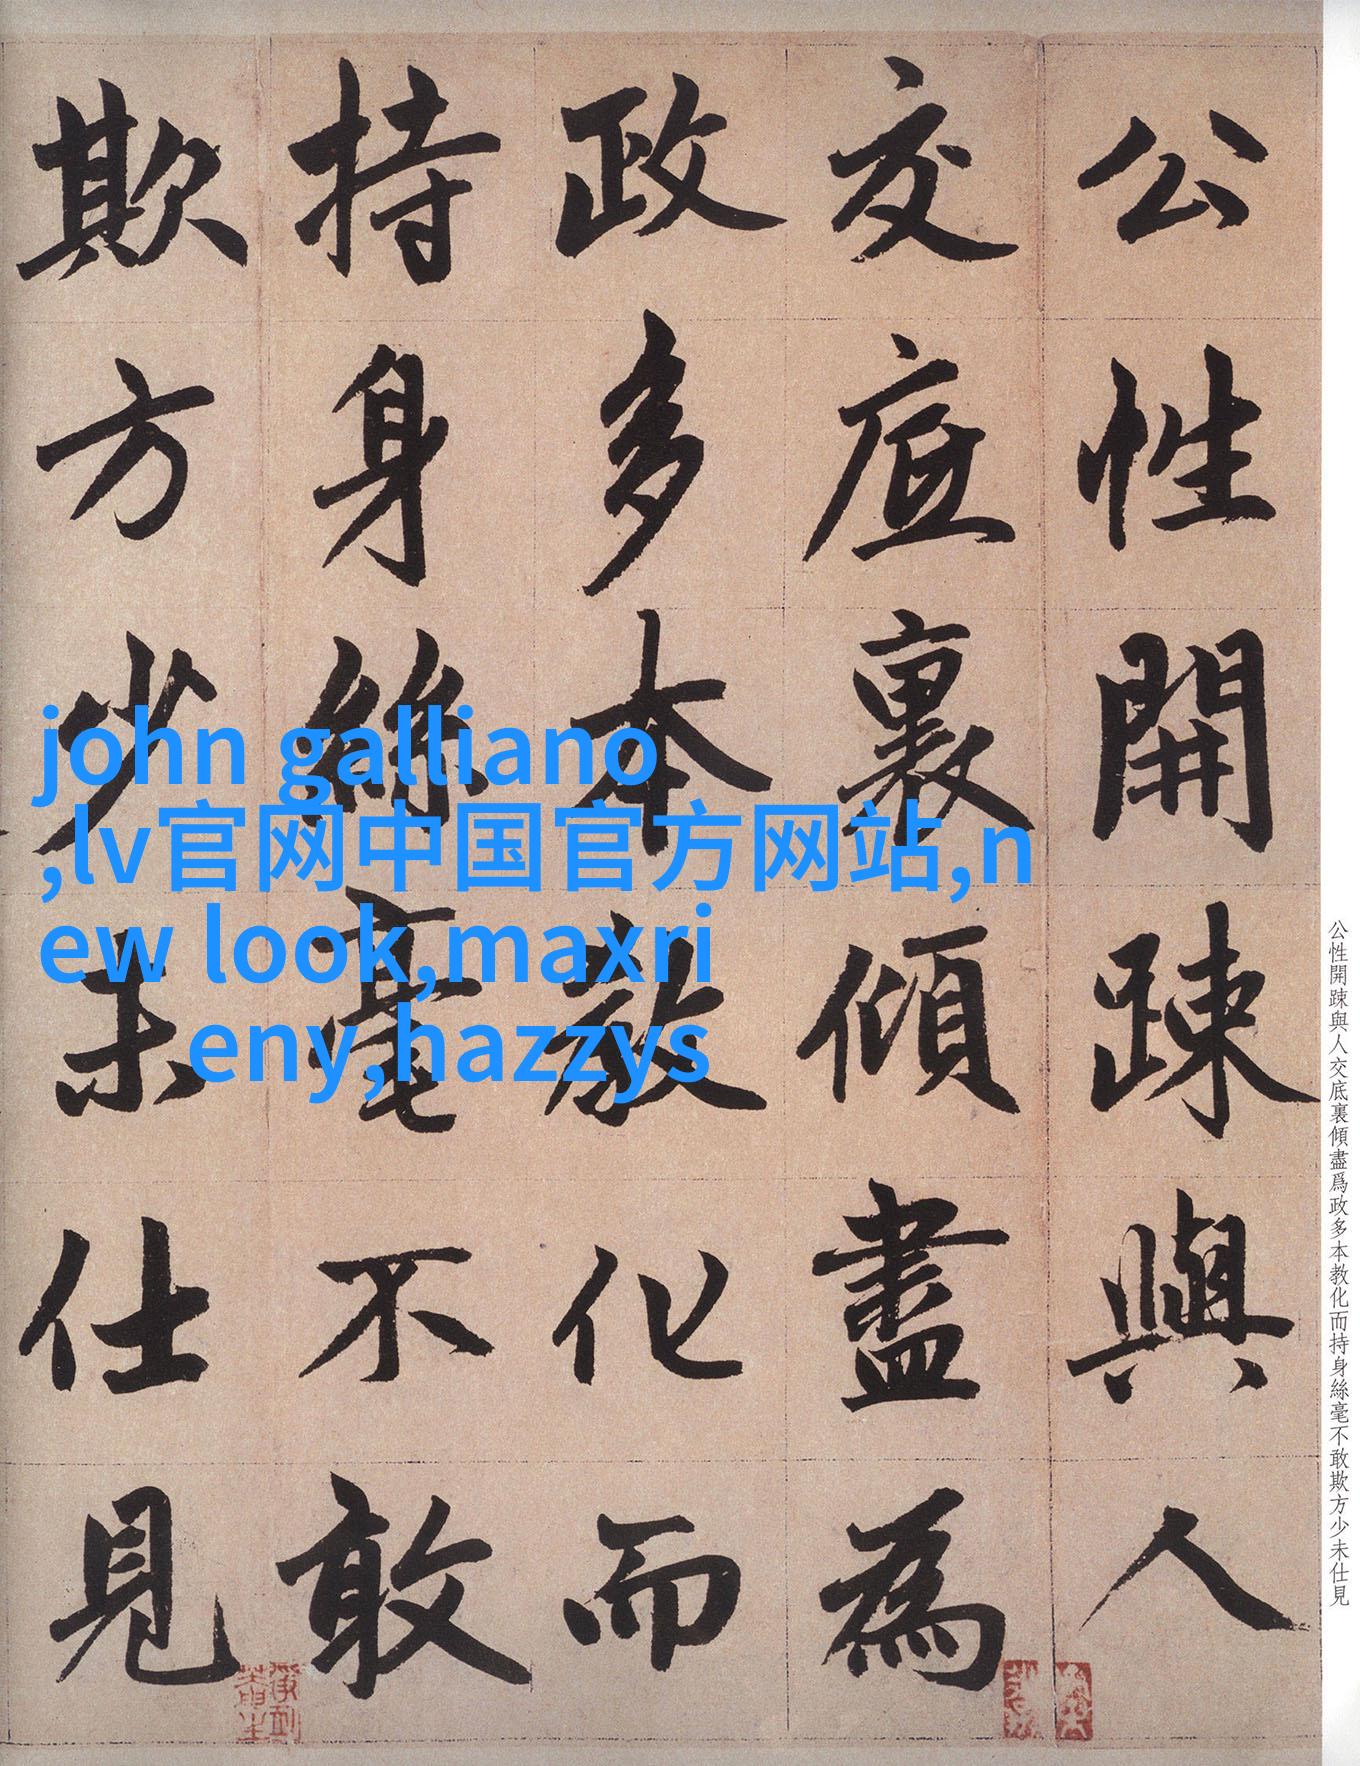 公性開踈與人
交底裏傾盡為
政多本教化而
持身絲毫不敢
欺方少未仕見
john galliano
,lv官网中国官方网站,n
ew look,maxri
eny,hazzys
公性開踈與人交底裏傾盡爲政多本教化而持身絲毫不敢欺方少未仕見